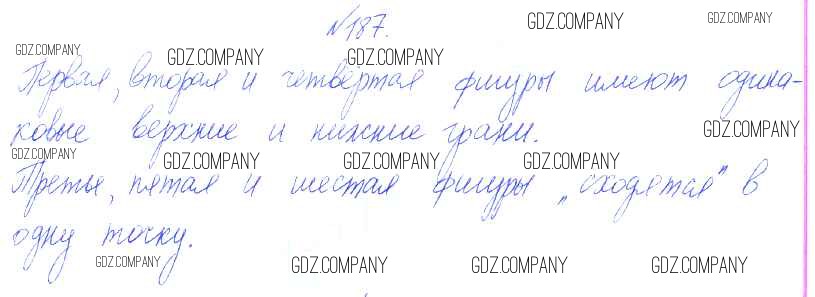 №187.
Первая, вторая и четвёртая фигуры имеют одина-
ковые верхние и нижние грани.
Третья, пятая и шестая фигуры „сходятся" в
одну точку.
GDZ.COMPANY GDZ.COMPANY
GDZ.COMPANY GDZ.COMPANY GDZ.COMPANY
GDZ.COMPANY
GDZ.COMPANY GDZ.COMPANY GDZ.COMPANY GDZ.COMPANY
GDZ.COMPANY GDZ.COMPANY GDZ.COMPANY GDZ.COMPANY